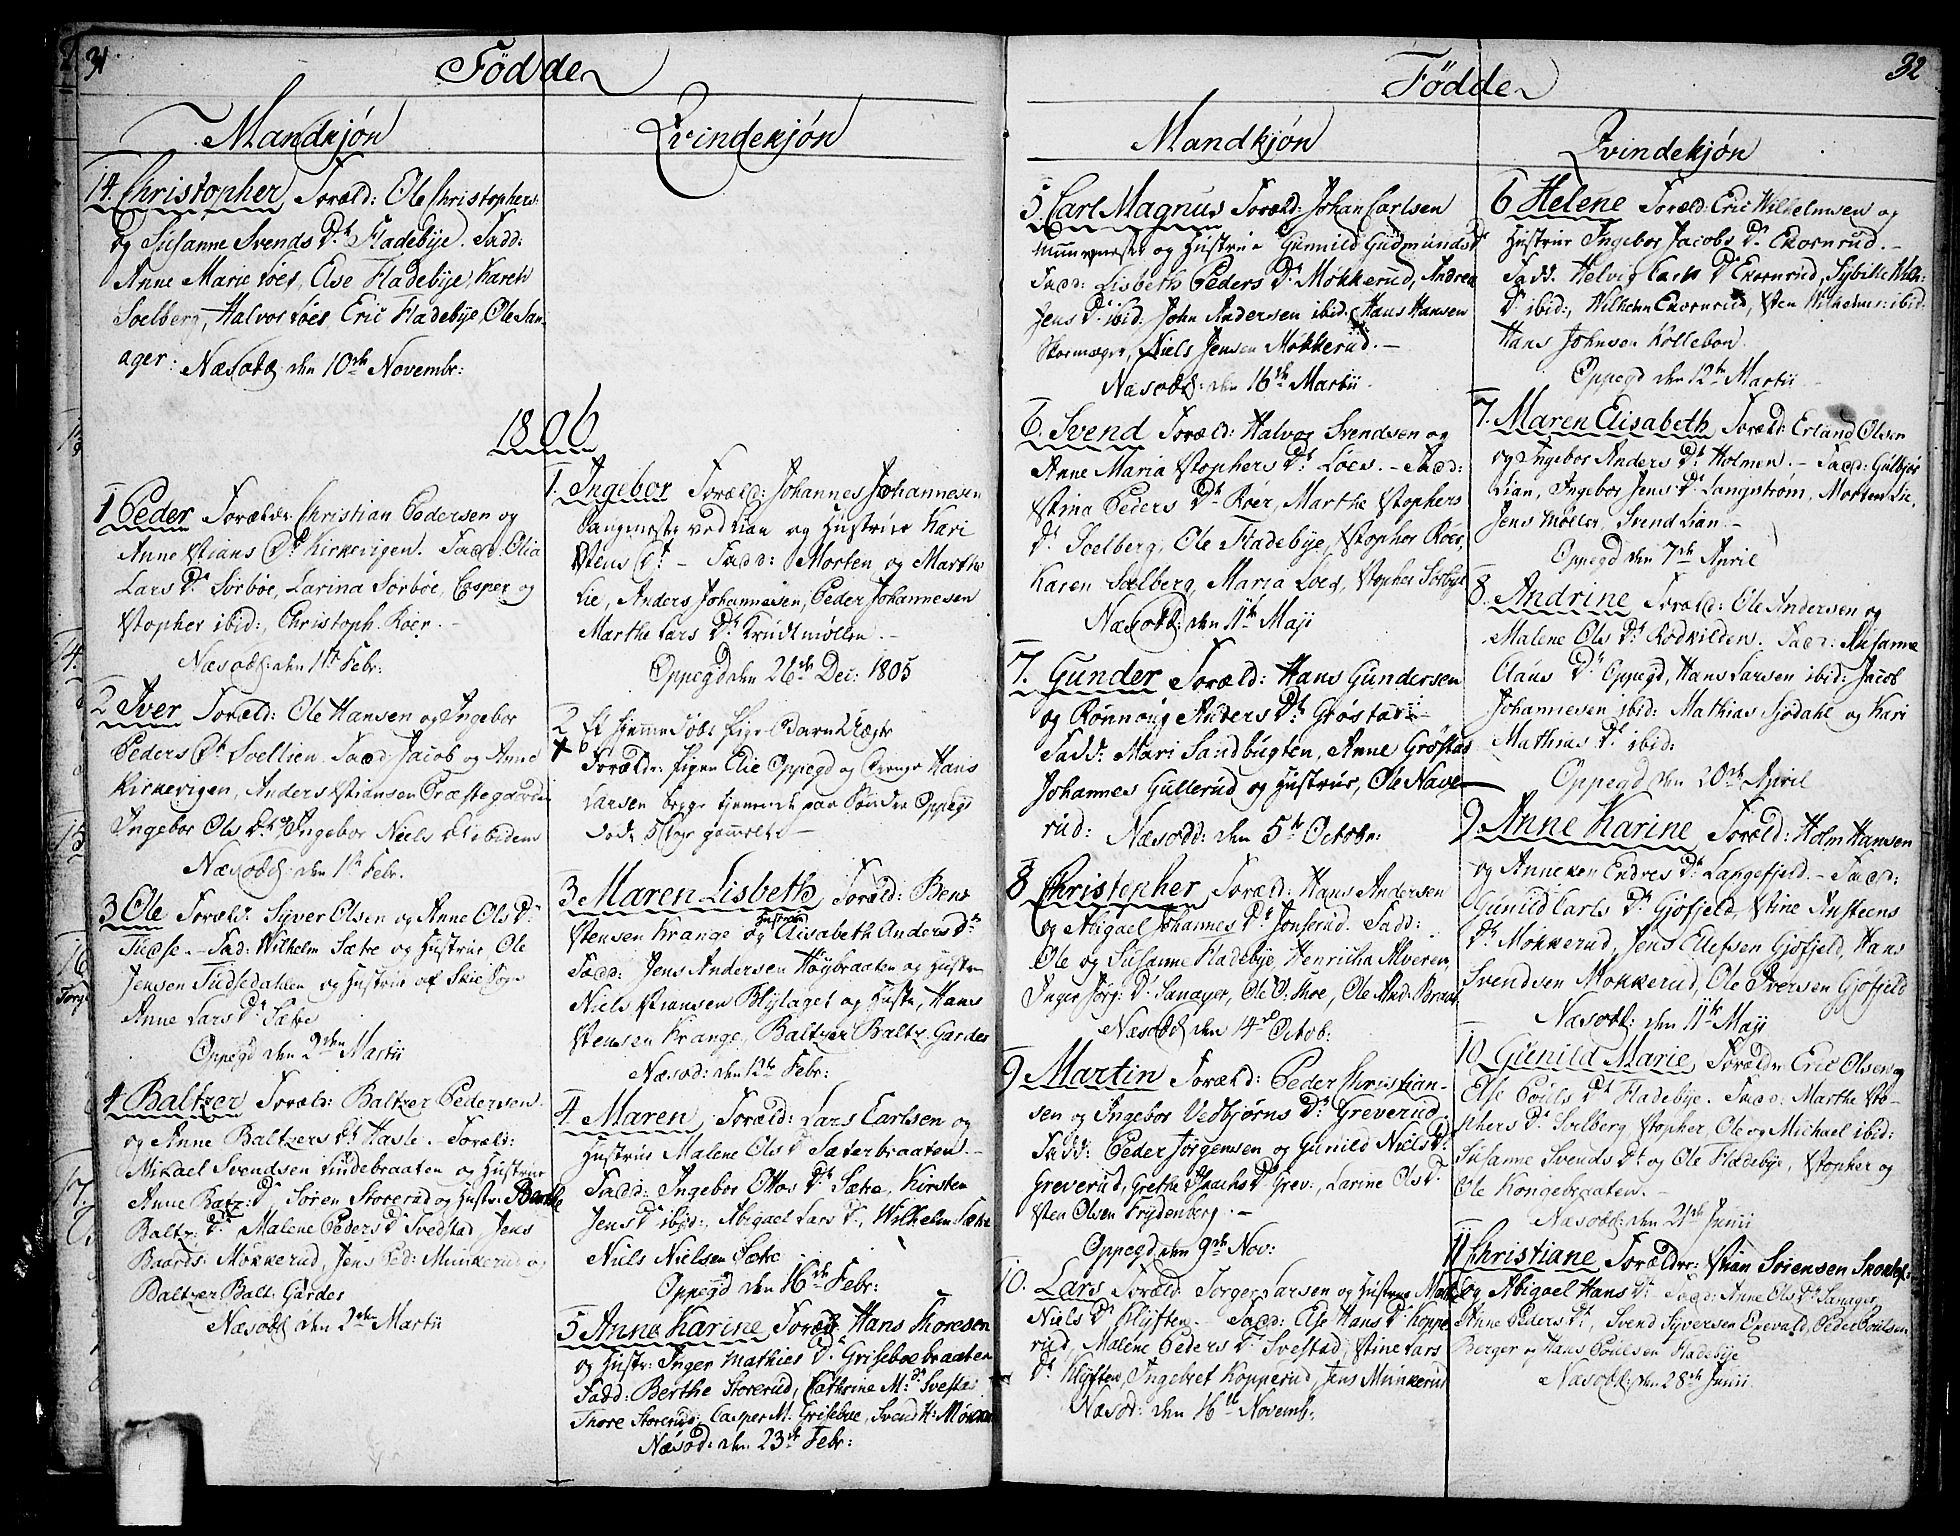 31
Fødde
Mandkjøn
14. Christopher Foræld: Ole Christophers:
og Susanne Svends Dr Fladebÿe. Fadd:
Anne Marie Løes, Else Fladebÿe, Karen
Soelberg, Halvor Løes, Eric Fladebÿe, Ole San-
ager: Næsodd: den 10de Novembr:
1806
1 Peder Foræld: Christian Pedersen og
Anne Xstians Dr Kirkevigen. Fadd: Olia
Lars Dr Sørbøe, Larina Sørbøe, Casper og
Xstopher ibid:, Christoph. Röer.-
Næsodd: den 1te Febr:
2 Iver Foræld: Ole Hansen og Ingebor
Peders Dr Soellien. Fadd: Jacob og Anne
Kirkevigen, Anders Xstiansen Præstegaarden
Ingebor Ols Dr, Ingebor Niels Dr ibidem
Næsodd: den 1te Febr.
3 Ole Foræld: Syver Olsen og Anne Ols Dr
Tudse.- Fad: Wilhelm Sætre og Hustrue, Ole
Jensen Tudsedalen og Hustrue af Skie Sogn
Anne Lars Dr Sætre
Oppegd den 2den Martii
4 Baltzer Foræld: Baltzer Pedersen
og Anne Baltzers Dr Hasle.- Foræld:
Mikael Svendsen Lindebraaten og Hustrue
Anne Batz: Dr Søren Storerud og Hustr: Berthe
Baltz: Dr Malene Peders Dr Svedstad Jens
Baards: Møkkerud, Jens Ped: Munkerud og
Baltzer Balt: Gardes
Næsodd den 2den Martii
Qvindekjøn
1. Ingebor Foræld: Johannes Johannesen
Saugmester ved Lian og Hustrue Kari
Stens Dr - Fadd: Morten og Marthe
Lie, Anders Johannesen, Peder Johannesen
Marthe Lars Dr Krudtmøllen.-
Oppegd den 26de Dec: 1805
2 Et hjemmedøbt Pige Barn Uægte
Foræld: Pigen Elie Oppegd og Drenge Hans
Larsen begge tjenende paa Sønder Oppegd
død 6 Uger gammelt.-
3 Maren Lisbeth Foræld: Bent
Stensen Krange og Hustrue Elisabeth Anders Dr
Fadd: Jens Andersen Høybraaten og Hustr:
Niels Xstiansen Blÿlaget og Hustr:, Hans
Stensen Krange, Baltzer Baltz: Gardes
Næsod: den 12te Febr:
4. Maren Foræld: Lars Carlsen og
Hustrue Malene Ols Dr Sæterbraaten.-
Fadd: Ingebor Ottos Dr Sætre, Kirsten
Jens Dr ibid:, Abigael Lars Dr, Wilhelm Sætre
Niels Nielsen Sætre
Oppegd den 16de Febr:
5 Anne Karine Foræld: Hans Thoresen
og Hustr: Inger Mathies Dr Grisebue braaten
Fadd: Berthe Storerud, Cathrine M: Dr Svestad
Thore Storerud, Casper M. Grisebue, Svend H: Møkker
Næsod: den 23de Febr:
32
Fødde
Mandkjøn
5. Carl Magnus Foræld: Johan Carlsen
og Hustrue Gunnild Gudmunds Dr
Fadd: Lisbeth Peders Dr Møkkerud, Andrea
Jens Dr ibid: John Andersen ibid: Hans Hansen
Skoemager, Niels Jensen Møkkerud.-
Næsodd: den 16de Martii
6. Svend Foræld: Halvor Svendsen og
Anne Maria Xstophers Dr Løes.- Fadd:
Xstina Peders Dr Röer, Marthe Xstophers
Dr Soelberg, Ole Fladebÿe, Xstopher Röer,
Karen Soelberg, Maria Loes, Xstopher Sørbye
Næsodd: den 11te Maji
7. Gunder Foræld: Hans Gundersen
og Rønnoug Anders Dr Grøstad.-
Fadd: Mari Sandbugten, Anne Grøstad
Johannes Gullerud og Hustrue, Ole Nave-
rud: Næsodd: den 5te Octobr:
8 Christopher Foræld: Hans Andersen
og Abigael Johannes Dr Jonserud. Fadd:
Ole og Susanne Fladebÿe, Henricha Alveren,
Inger Jørg: Dr Sanager, Ole O: Skoe, Ole And: Braat
Næsodd den 14de Octob:
9 Martin Foræld: Peder Christian-
sen og Ingebor Vedbjørns Dr Greverud
Fadd: Peder Jørgensen og Gunild Niels Dr
Greverud, Grethe Isachs Dr Grev:, Larine Ols Dr
Sten Olsen Frydenberg.-
Oppegd den 9de Nov:
10. Lars Foræld: Torger Larsen og Hustrue Marthe
Niels Dr Klÿften.- Fadd: Else Hans Dr Koppe
rud, Malene Peders Dr Svestad, Xstine Lars
Dr Klÿften, Ingebret Kopperud, Jens Munkerud
Næsod: den 16de Novemb:
Qvindekjøn
6 Helene Foræld: Eric Wilhelmsen og
Hustrue Ingebor Jacobs Dr Ekornrud.-
Fadd: Helvig Dr Ekornrud, Sybille Wilh:
Dr ibid:, Wilhelm Ekornrud, Sten Wilhelms: ibid
Hans Johnsen Kollebon.
Oppegd den 12te Martii
7. Maren Elisabeth Foræld: Erland Olsen
og Ingebor Anders Dr Holmen.- Fadd: Gulbjør
Lian, Ingebor Jens Dr Langstrøm, Morten Lie,
Jens Møller, Svend Lian.-
Oppegd den 7de April
8. Andrine Foræld: Ole Andersen og
Malene Ols Dr Rødkilden. Fadd: Susanne
Claus Dr Oppegd, Hans Larsen ibid: Jacob
Johannesen ibid: Mathias Sjødahl og Kari
Mathias Dr ibid:
Oppegd den 20de April
9. Anne Karine Foræld: Holm Hansen
og Anneken Endres Dr Langefjeld.- Fadd:
Gunild Carls Dr Gjøfjeld, Stine Austeens
Dr Møkkerud, Jens Ellefsen Gjøfjeld, Hans
Svendsen Møkkerud, Ole Iversen Gjøfjeld
Næsodd: den 11te Maji
10. Gunild Marie Foræld: Eric Olsen og
Else Pouls Dr Fladebÿe. Fadd: Marthe Xsto-
phers Dr Soelberg, Xstopher, Ole og Michael ibid:
Susanne Svends Dr og Ole Fladebÿe, Xstopher og
Ole Kongebraaten.-
Næsodd: den 21de Junii
11 Christiane Forældr: Xstian Sørensen Skoklef:
og Abigael Hans Dr- Fadd: Anne Ols Dr Sanager
Anne Peders Dr, Svend Syversen Eqevald, Peder Poulsen
Berger og Hans Poulsen Fladebÿe
Næsodd: den 28de Junii